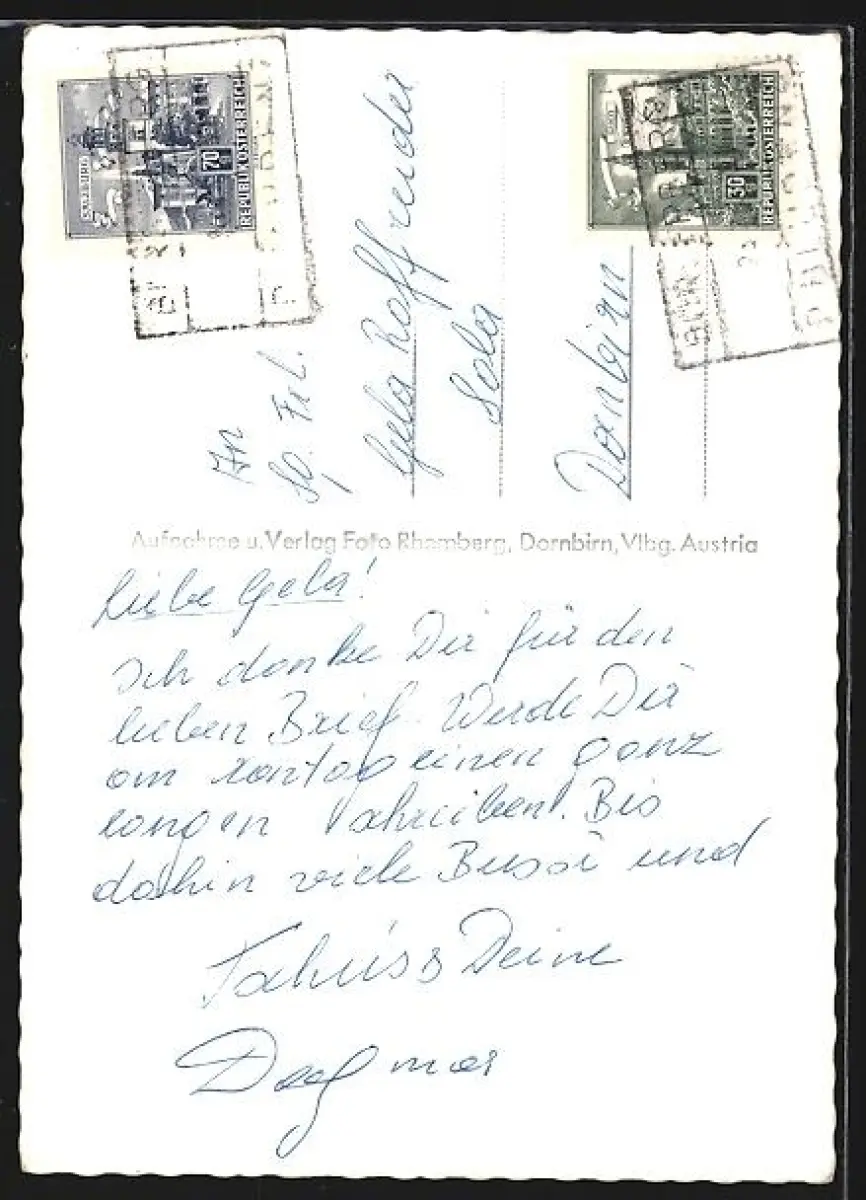 SALZBURG
70
REPUBLIK ÖSTERREICH
WIEN
30
REPUBLIK ÖSTERREICH
An
Sp. Frl.
Gela
Sola
Dornbirn
Aufnahme u. Verlag Foto Rhomberg, Dornbirn, Vlbg. Austria
Liebe Gela!
Ich danke Dir für den
lieben Brief. Werde Dir
am einen ganz
langen schreiben. Bis
dahin viele Bussi und
Tschüss Deine
Dagmar